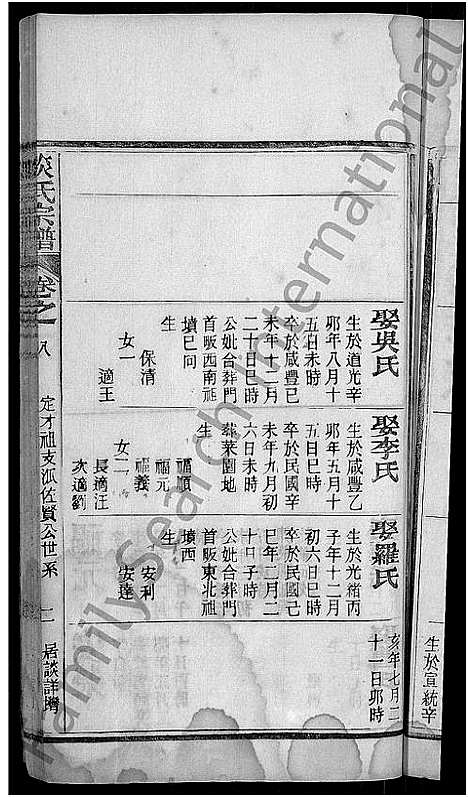 生於宣統辛
亥年七月二
十一日卯時
娶吳氏
生於道光辛
卯年八月十
五日未時
卒於咸豐己
未年十二月
二十日巳時
公妣合葬門
首畈西南祖
墳巳向
生
保清
女一
適王
娶李氏
生於咸豐乙
卯年五月十
五日巳時
卒於民國辛
未年九月初
六日未時
葬菜園地
生
福順
福元
福義
女二
長適汪
次適劉
娶羅氏
生於光緒丙
子年十二月
初六日巳時
卒於民國己
巳年二月二
十日子時
公妣合葬門
首畈東北祖
墳西
生
安利
安達
談氏宗譜
卷之八
定才祖支派佐賢公世系
居談詳塆
FamilySearch International